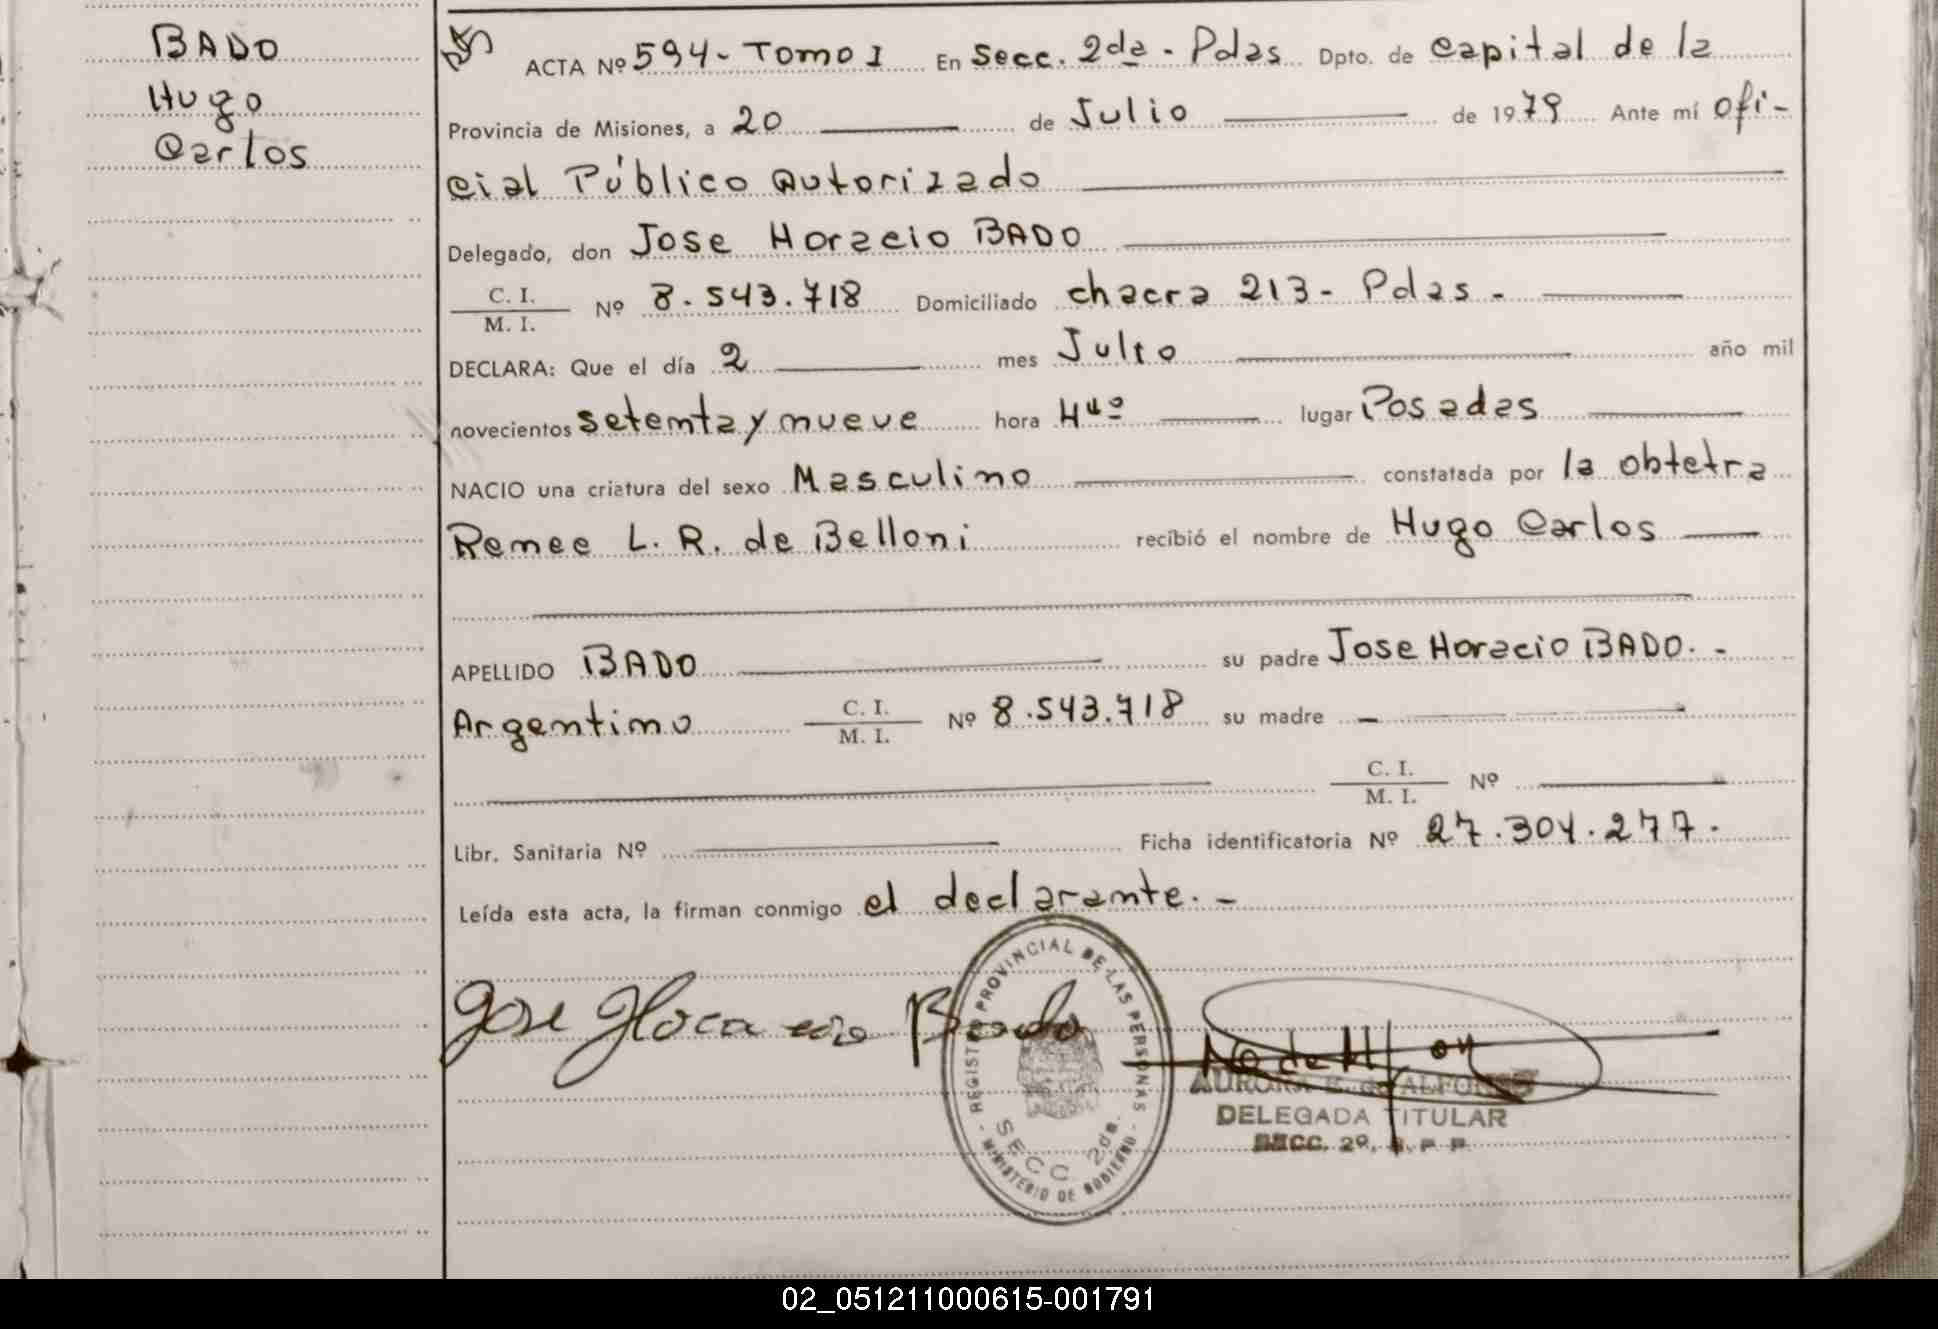 BADO
Hugo
Carlos
ACTA Nº 594 - Tomo I En Secc. 2da - Pdas Dpto. de Capital de la
Provincia de Misiones, a 20 de Julio de 1979 Ante mí Ofi-
cial Público Autorizado
Delegado, don Jose Horacio BADO
C. I.
M. I. Nº 8.543.718 Domiciliado chacra 213 - Pdas -
DECLARA: Que el día 2 mes Julio año mil
novecientos setenta y nueve hora lugar Posadas
NACIO una criatura del sexo Masculino constatada por la obtetra
Renee L. R. de Belloni recibió el nombre de Hugo Carlos
APELLIDO BADO su padre Jose Horacio BADO. -
Argentino C. I.
M. I. Nº 8.543.718 su madre -
C. I.
M. I. Nº
Libr. Sanitaria Nº Ficha identificatoria Nº 27.304.277.
Leída esta acta, la firman conmigo el declarante. -
Jose Horacio Bado
REGISTRO PROVINCIAL DE LAS PERSONAS
SECC 2da.
- MINISTERIO DE GOBIERNO -
AURORA E. de ALFONSO
DELEGADA TITULAR
SECC. 2º, R. P. P.
02_051211000615-001791